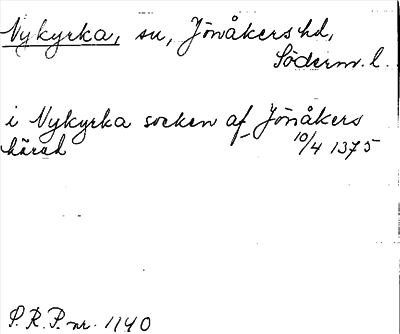 Nykyrka, sn, Jönåkers hd,
Söderm. l.
i Nykyrka socken af Jönåkers
härad 10/4 1375
P.R.P. nr. 1140